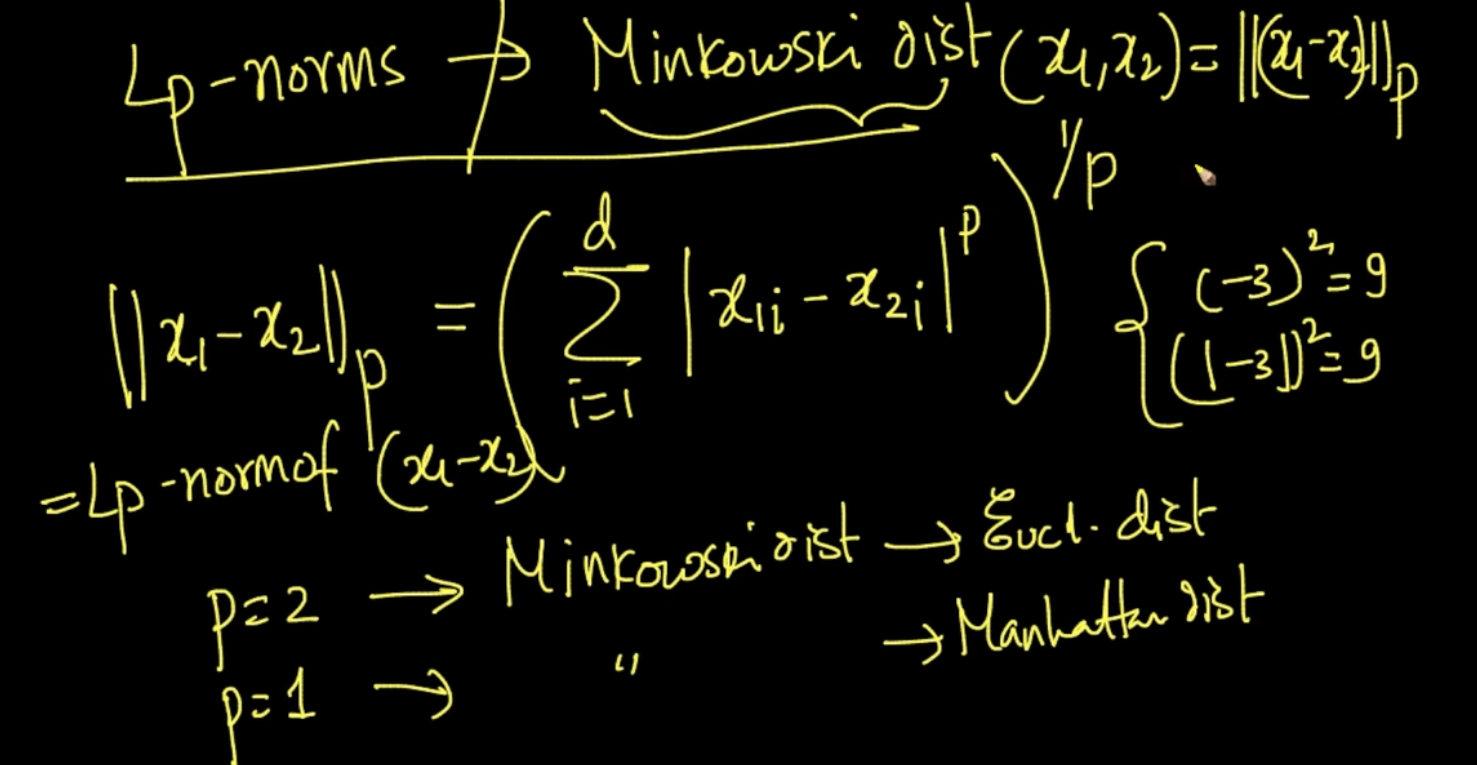 Lp-norms → Minkowski dist (x1, x2) = ||(x1-x2)||p
||x1-x2||p = ( d Σ i=1 |x1i - x2i|^p )^1/p
{ (-3)^2 = 9
(|-3|)^2 = 9
= Lp-norm of (x1-x2)
p=2 → Minkowski dist → Eucl. dist
p=1 → " → Manhattan dist